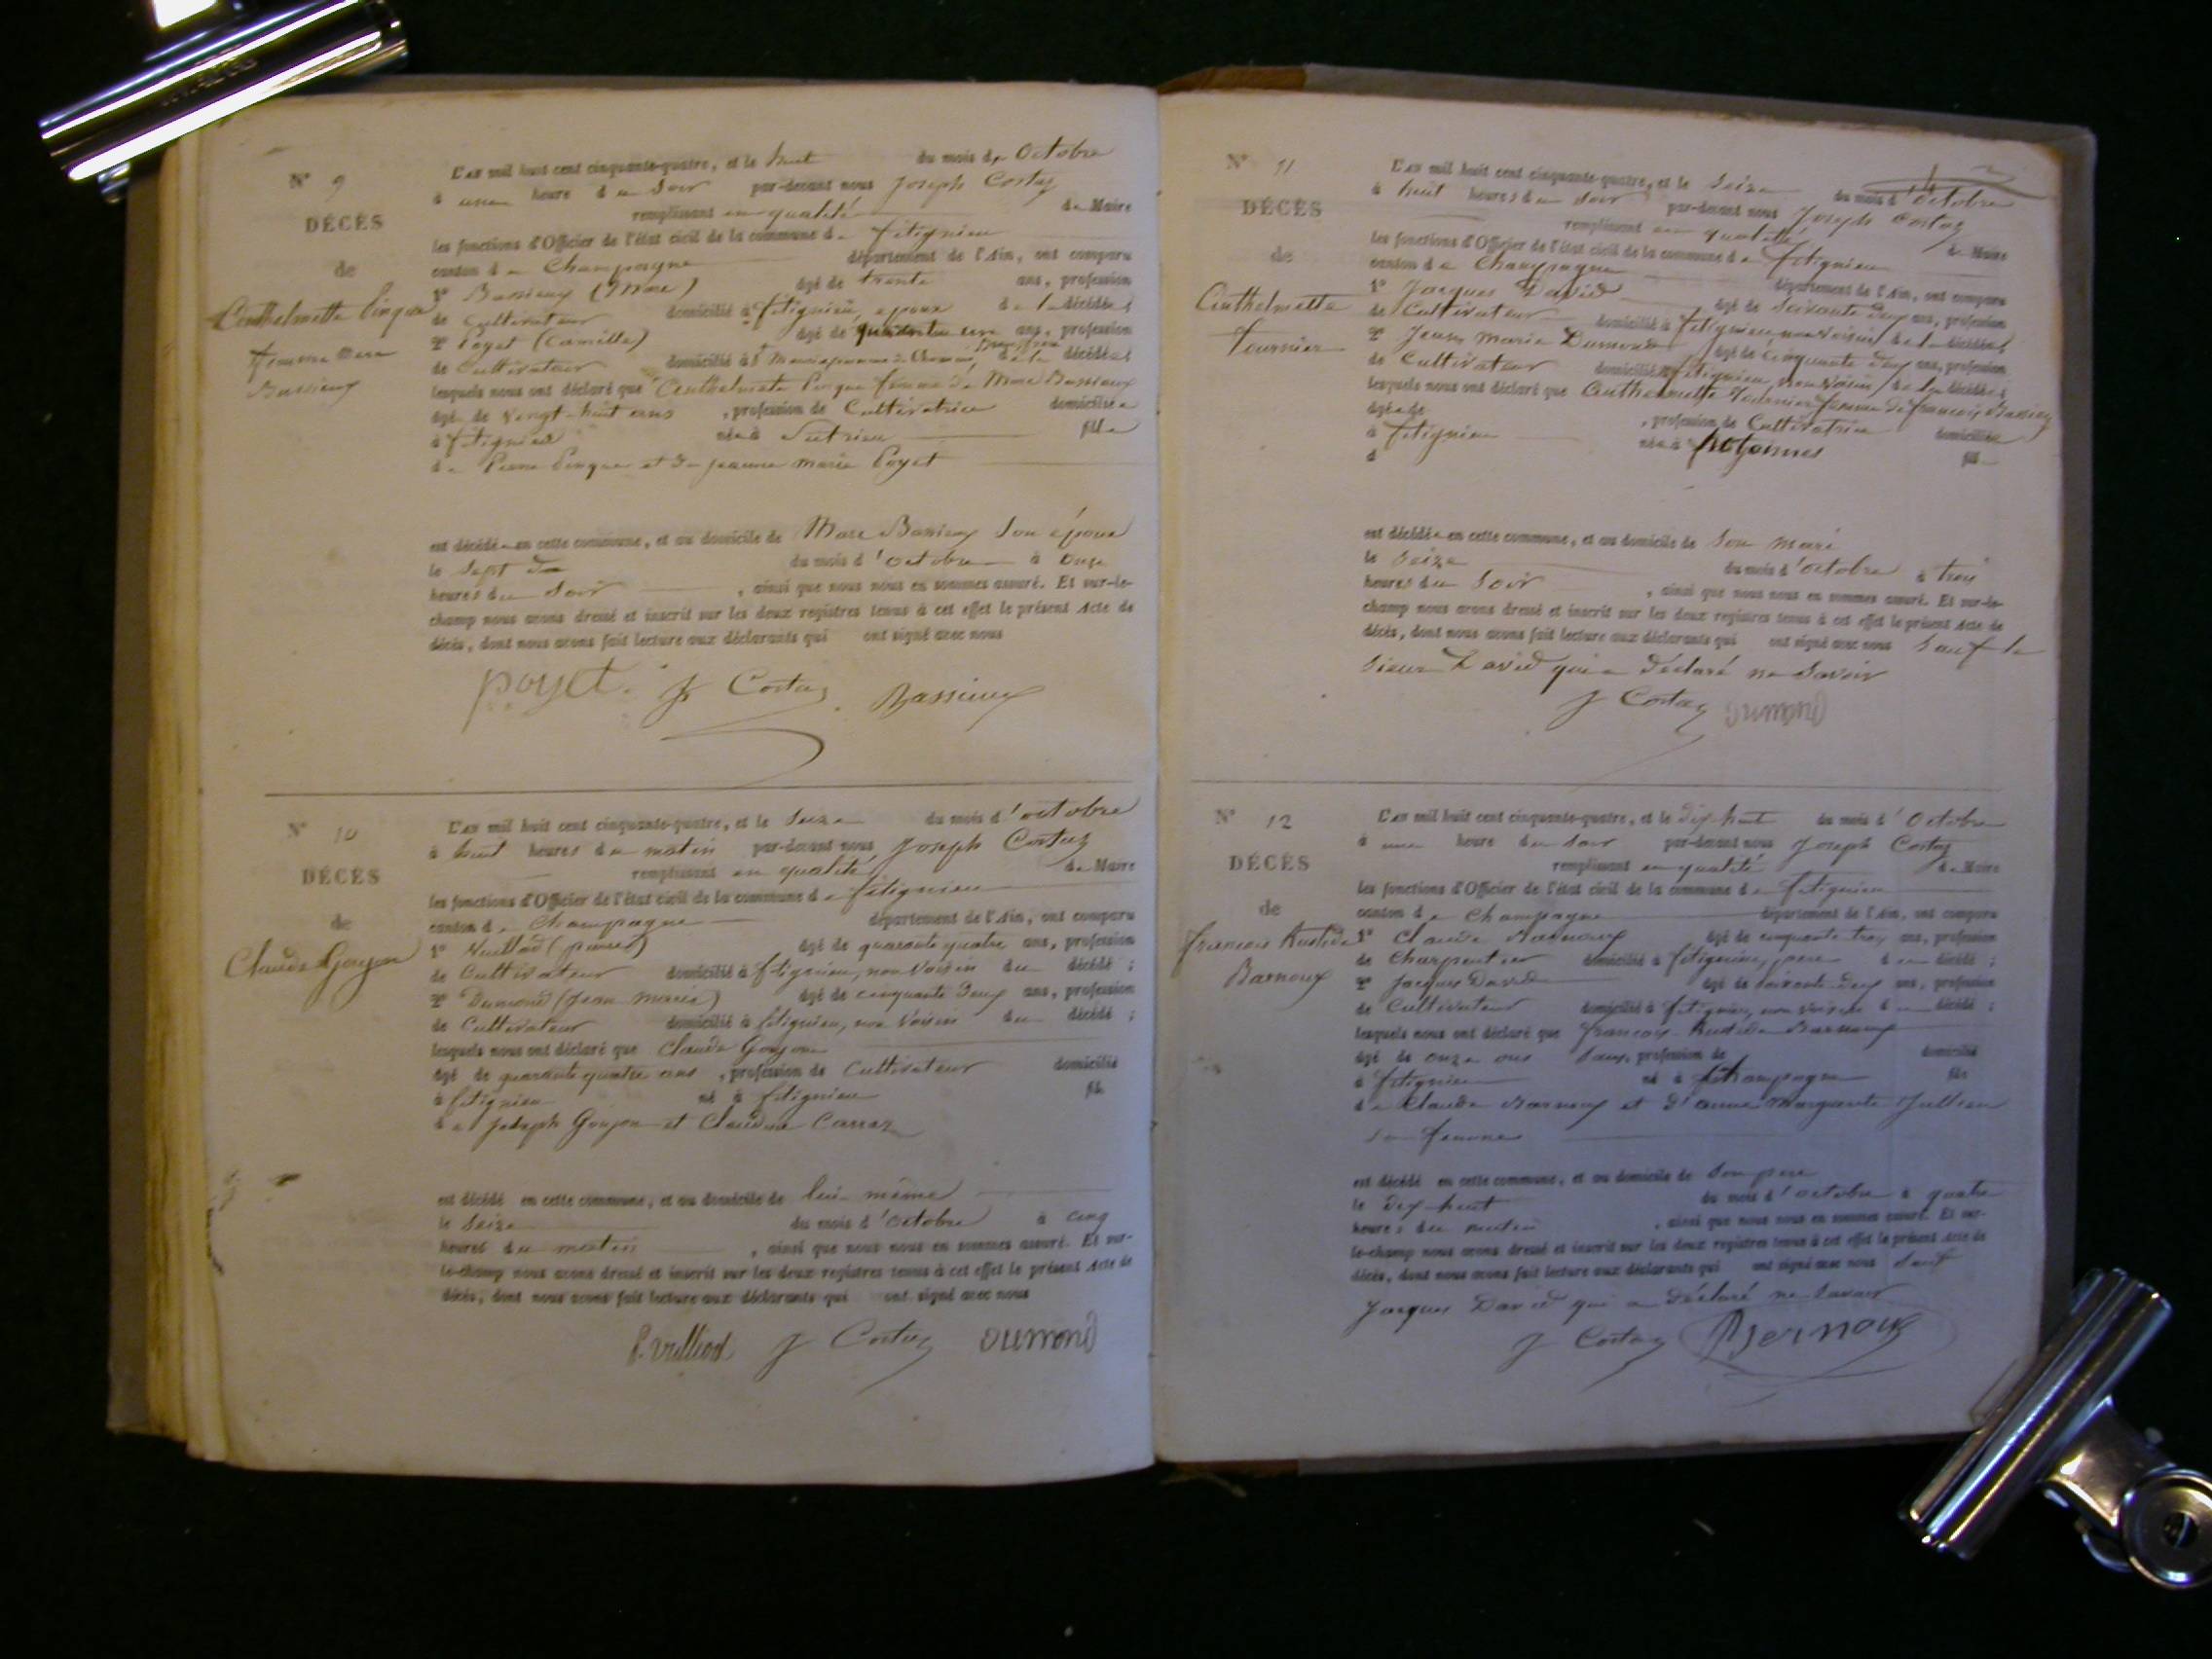 N° 9
DÉCÈS
de
Anthelmette Pinque
femme Marc
Bassieux
L'an mil huit cent cinquante-quatre, et le huit du mois d Octobre
à une heure du soir par-devant nous Joseph Costaz
remplissant en qualité de Maire
les fonctions d'Officier de l'état civil de la commune de fitignieu
canton de Champagne département de l'Ain, ont comparu
1° Bassieux (Marc) âgé de trente ans, profession
de Cultivateur domicilié à fitignieu, epoux de la décédée ;
2° Poyet (Camille) âgé de quarante un ans, profession
de Cultivateur domicilié à de la décédée ;
lesquels nous ont déclaré que Anthelmette Pinque femme de Marc Bassieux
âgé de vingt-huit ans , profession de Cultivatrice domiciliée
à fitignieu née à Sutrieu fille
de Pierre Pinque et de jeanne marie Poyet
est décédée en cette commune, et au domicile de Marc Bassieux Son époux
le Sept du mois d'octobre à onze
heures du Soir , ainsi que nous nous en sommes assuré. Et sur-le-
champ nous avons dressé et inscrit sur les deux registres tenus à cet effet le présent Acte de
décès, dont nous avons fait lecture aux déclarants qui ont signé avec nous
poyet. J Costaz Bassieux
N° 10
DÉCÈS
de
Claude Goujon
L'an mil huit cent cinquante-quatre, et le Seize du mois d'octobre
à huit heures du matin par-devant nous Joseph Costaz
remplissant en qualité de Maire
les fonctions d'Officier de l'état civil de la commune de fitignieu
canton de Champagne département de l'Ain, ont comparu
1° Vuilliod (pierre) âgé de quarante quatre ans, profession
de Cultivateur domicilié à fitignieu, non Voisin du décédé ;
2° Dumond (Jean Marie) âgé de cinquante deux ans, profession
de Cultivateur domicilié à fitignieu, non Voisin du décédé ;
lesquels nous ont déclaré que Claude Goujon
âgé de quarante quatre ans , profession de Cultivateur domicilié
à fitignieu né à fitignieu fils
de Joseph Goujon et Claudine Carraz
est décédé en cette commune, et au domicile de lui-même
le Seize du mois d'octobre à cinq
heures du matin , ainsi que nous nous en sommes assuré. Et sur-
le-champ nous avons dressé et inscrit sur les deux registres tenus à cet effet le présent Acte de
décès, dont nous avons fait lecture aux déclarants qui ont signé avec nous
P. Vuilliod J Costaz DUMOND
N° 11
DÉCÈS
de
Anthelmette
Tournier
L'an mil huit cent cinquante-quatre, et le Seize du mois d'Octobre
à huit heures du soir par-devant nous Joseph Costaz
remplissant en qualité de Maire
les fonctions d'Officier de l'état civil de la commune de fitignieu
canton de Champagne département de l'Ain, ont comparu
1° Jacques David âgé de Soixante deux ans, profession
de Cultivateur domicilié à fitignieu, non Voisin de la décédée ;
2° Jean Marie Dumond âgé de cinquante deux ans, profession
de Cultivateur domicilié à fitignieu, non Voisin de la décédée ;
lesquels nous ont déclaré que Anthelmette Tournier femme de francois Bassieux
âgée de , profession de Cultivatrice domiciliée
à fitignieu née à hotonnes fille
d
est décédée en cette commune, et au domicile de Son mari
le Seize du mois d'octobre à trois
heures du Soir , ainsi que nous nous en sommes assuré. Et sur-le-
champ nous avons dressé et inscrit sur les deux registres tenus à cet effet le présent Acte de
décès, dont nous avons fait lecture aux déclarants qui ont signé avec nous Sauf le
Sieur David qui a déclaré ne Savoir
J Costaz DUMOND
N° 12
DÉCÈS
de
francois Aristide
Barnoux
L'an mil huit cent cinquante-quatre, et le dix huit du mois d'Octobre
à une heure du Soir par-devant nous Joseph Costaz
remplissant en qualité de Maire
les fonctions d'Officier de l'état civil de la commune de fitignieu
canton de Champagne département de l'Ain, ont comparu
1° Claude Barnoux âgé de cinquante trois ans, profession
de Charpentier domicilié à fitignieu, pere du décédé ;
2° Jacques David âgé de soixante deux ans, profession
de Cultivateur domicilié à fitignieu, non voisin du décédé ;
lesquels nous ont déclaré que francois Aristide Barnoux
âgé de onze ans Sans, profession de domicilié
à fitignieu né à Champagne fils
de Claude Barnoux et d'anne Marguerite Jullien
Sa femme
est décédé en cette commune, et au domicile de Son pere
le dix-huit du mois d'octobre à quatre
heures du matin , ainsi que nous nous en sommes assuré. Et sur-
le-champ nous avons dressé et inscrit sur les deux registres tenus à cet effet le présent Acte de
décès, dont nous avons fait lecture aux déclarants qui ont signé avec nous Sauf
Jacques David qui a déclaré ne Savoir
J Costaz Bernoux